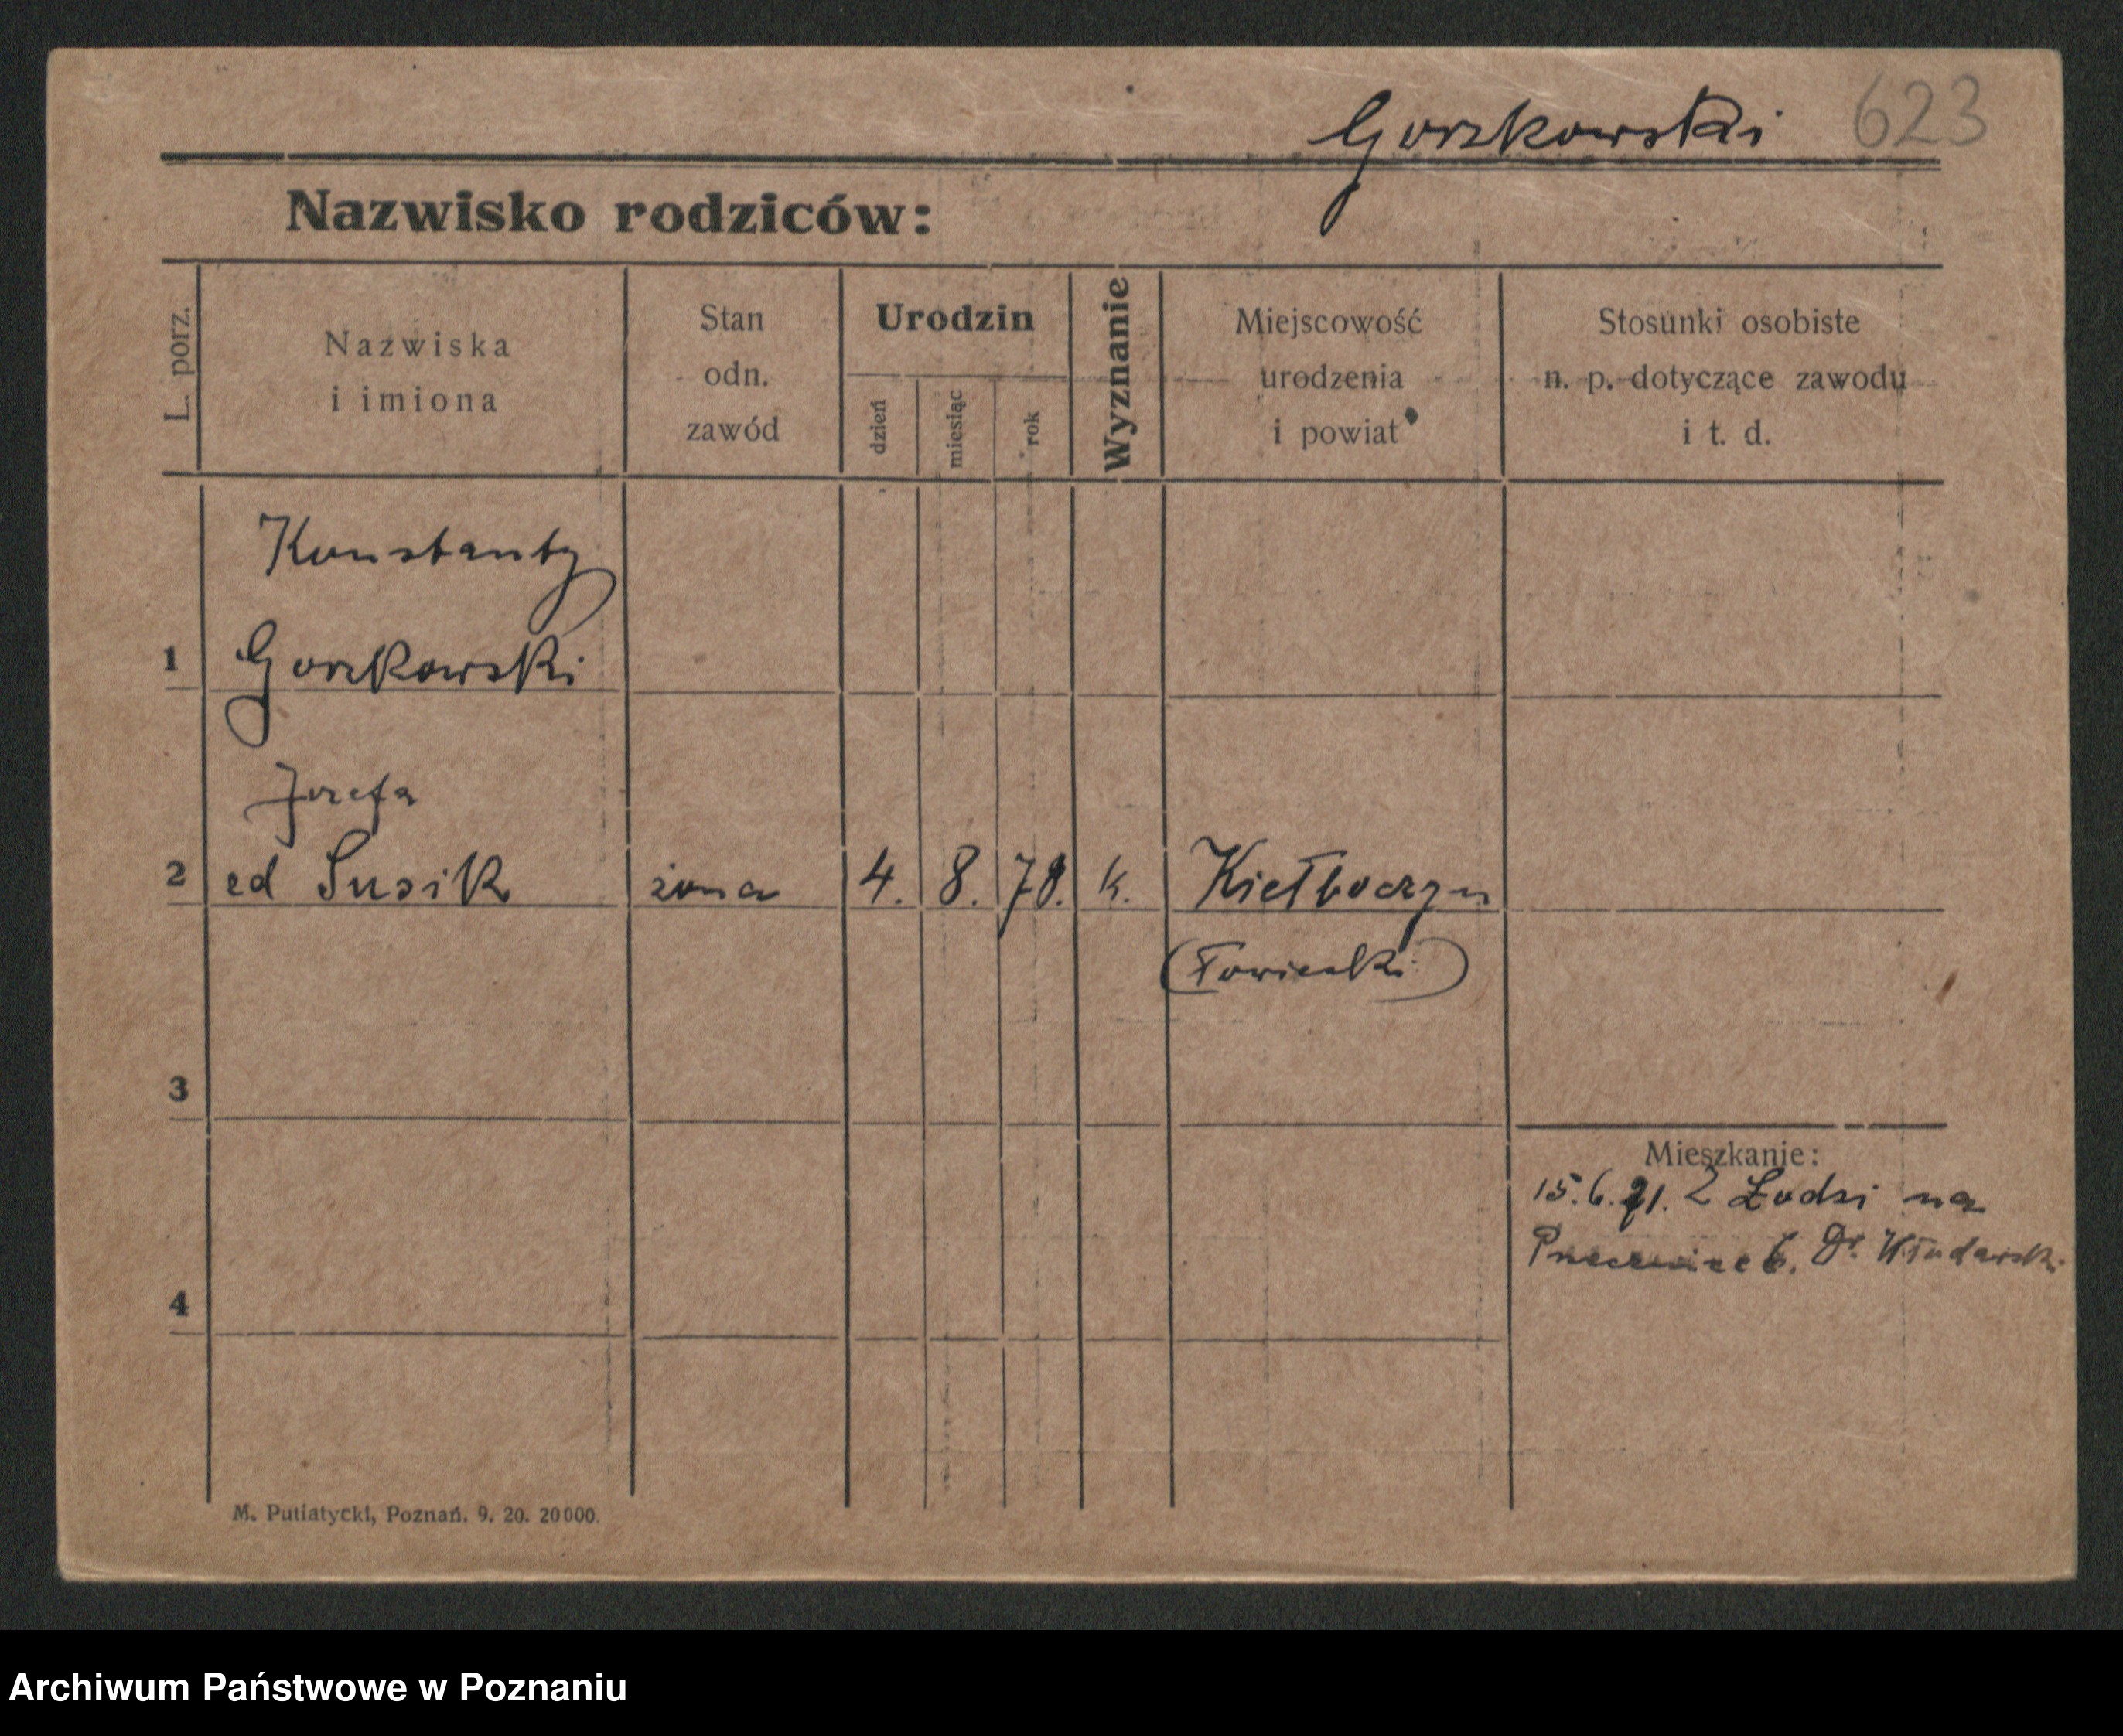 Gorzkowski 623
Nazwisko rodziców:
L. porz.
Nazwiska
i imiona
Stan
odn.
zawód
Urodzin
dzień
miesiąc
rok
Wyznanie
Miejscowość
urodzenia
i powiat
Stosunki osobiste
n. p. dotyczące zawodu
i t. d.
Konstanty
1 Gorzkowski
Jozefa
2 ed Susik żona 4. 8. 78. k.
3
Mieszkanie:
15.6.21. Z Łodzi na
6. Dr.
4
M. Putiatycki, Poznań. 9. 20. 20000.
Archiwum Państwowe w Poznaniu